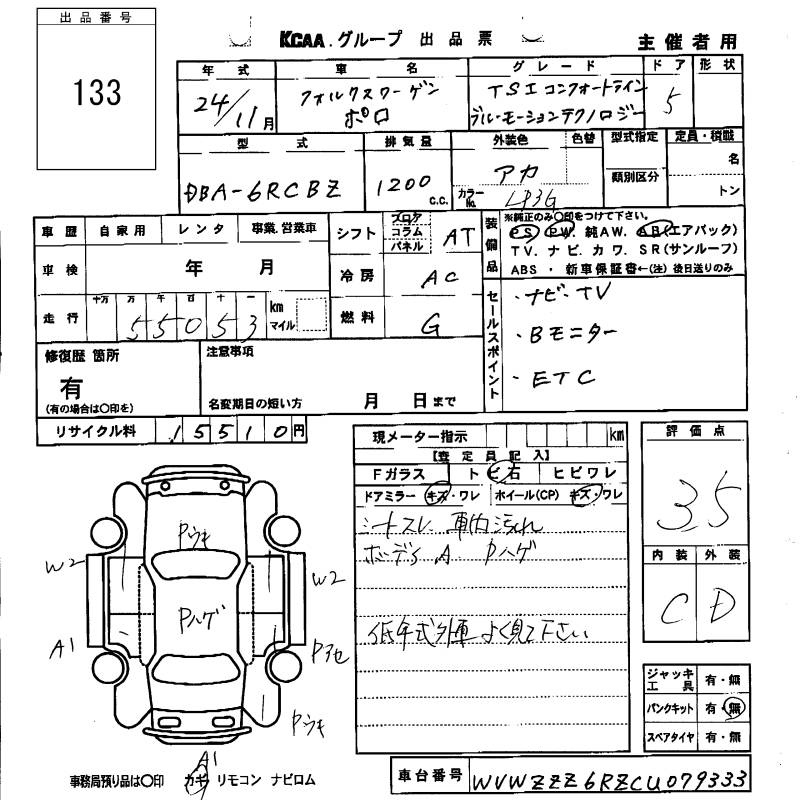 出品番号
133
KCAA.グループ 出品票 主催者用
年式 車名 グレード ドア 形状
24/11月 フォルクスワーゲン ポロ TSIコンフォートライン ブルーモーションテクノロジー 5
型式 排気量 外装色 色替 型式指定 定員・積載
DBA-6RCBZ 1200 C.C. アカ カラーNo. LP3G 類別区分 名 トン
車歴 自家用 レンタ 事業.営業車
シフト フロア コラム パネル AT
装備品 ※純正のみ〇印をつけて下さい。
PS PW. 純AW. AB(エアバック)
TV. ナビ. カワ. SR(サンルーフ)
ABS ・ 新車保証書←(注) 後日送りのみ
車検 年 月
冷房 AC
走行 十万 万 千 百 十 一 km マイル
55053
燃料 G
セールスポイント
・ナビ・TV
・Bモニター
・ETC
修復歴 箇所
有
(有の場合は〇印を)
注意事項
名変期日の短い方 月 日まで
リサイクル料 15510円
現メーター指示 km
【査定員記入】
Fガラス ト ビ 石 ヒビワレ
ドアミラー キズ・ワレ ホイール(CP) キズ・ワレ
シートスレ 車内汚れ
ボディA Pハゲ
低年式外車 よく見て下さい
評価点
3.5
内装 外装
C D
Pウキ
W2
W2
Pハゲ
A1
Pアセ
Pウキ
A1
ジャッキ工具 有・無
パンクキット 有・無
スペアタイヤ 有・無
事務局預り品は〇印 カギ リモコン ナビロム
車台番号 WVWZZZ6RZCU079333